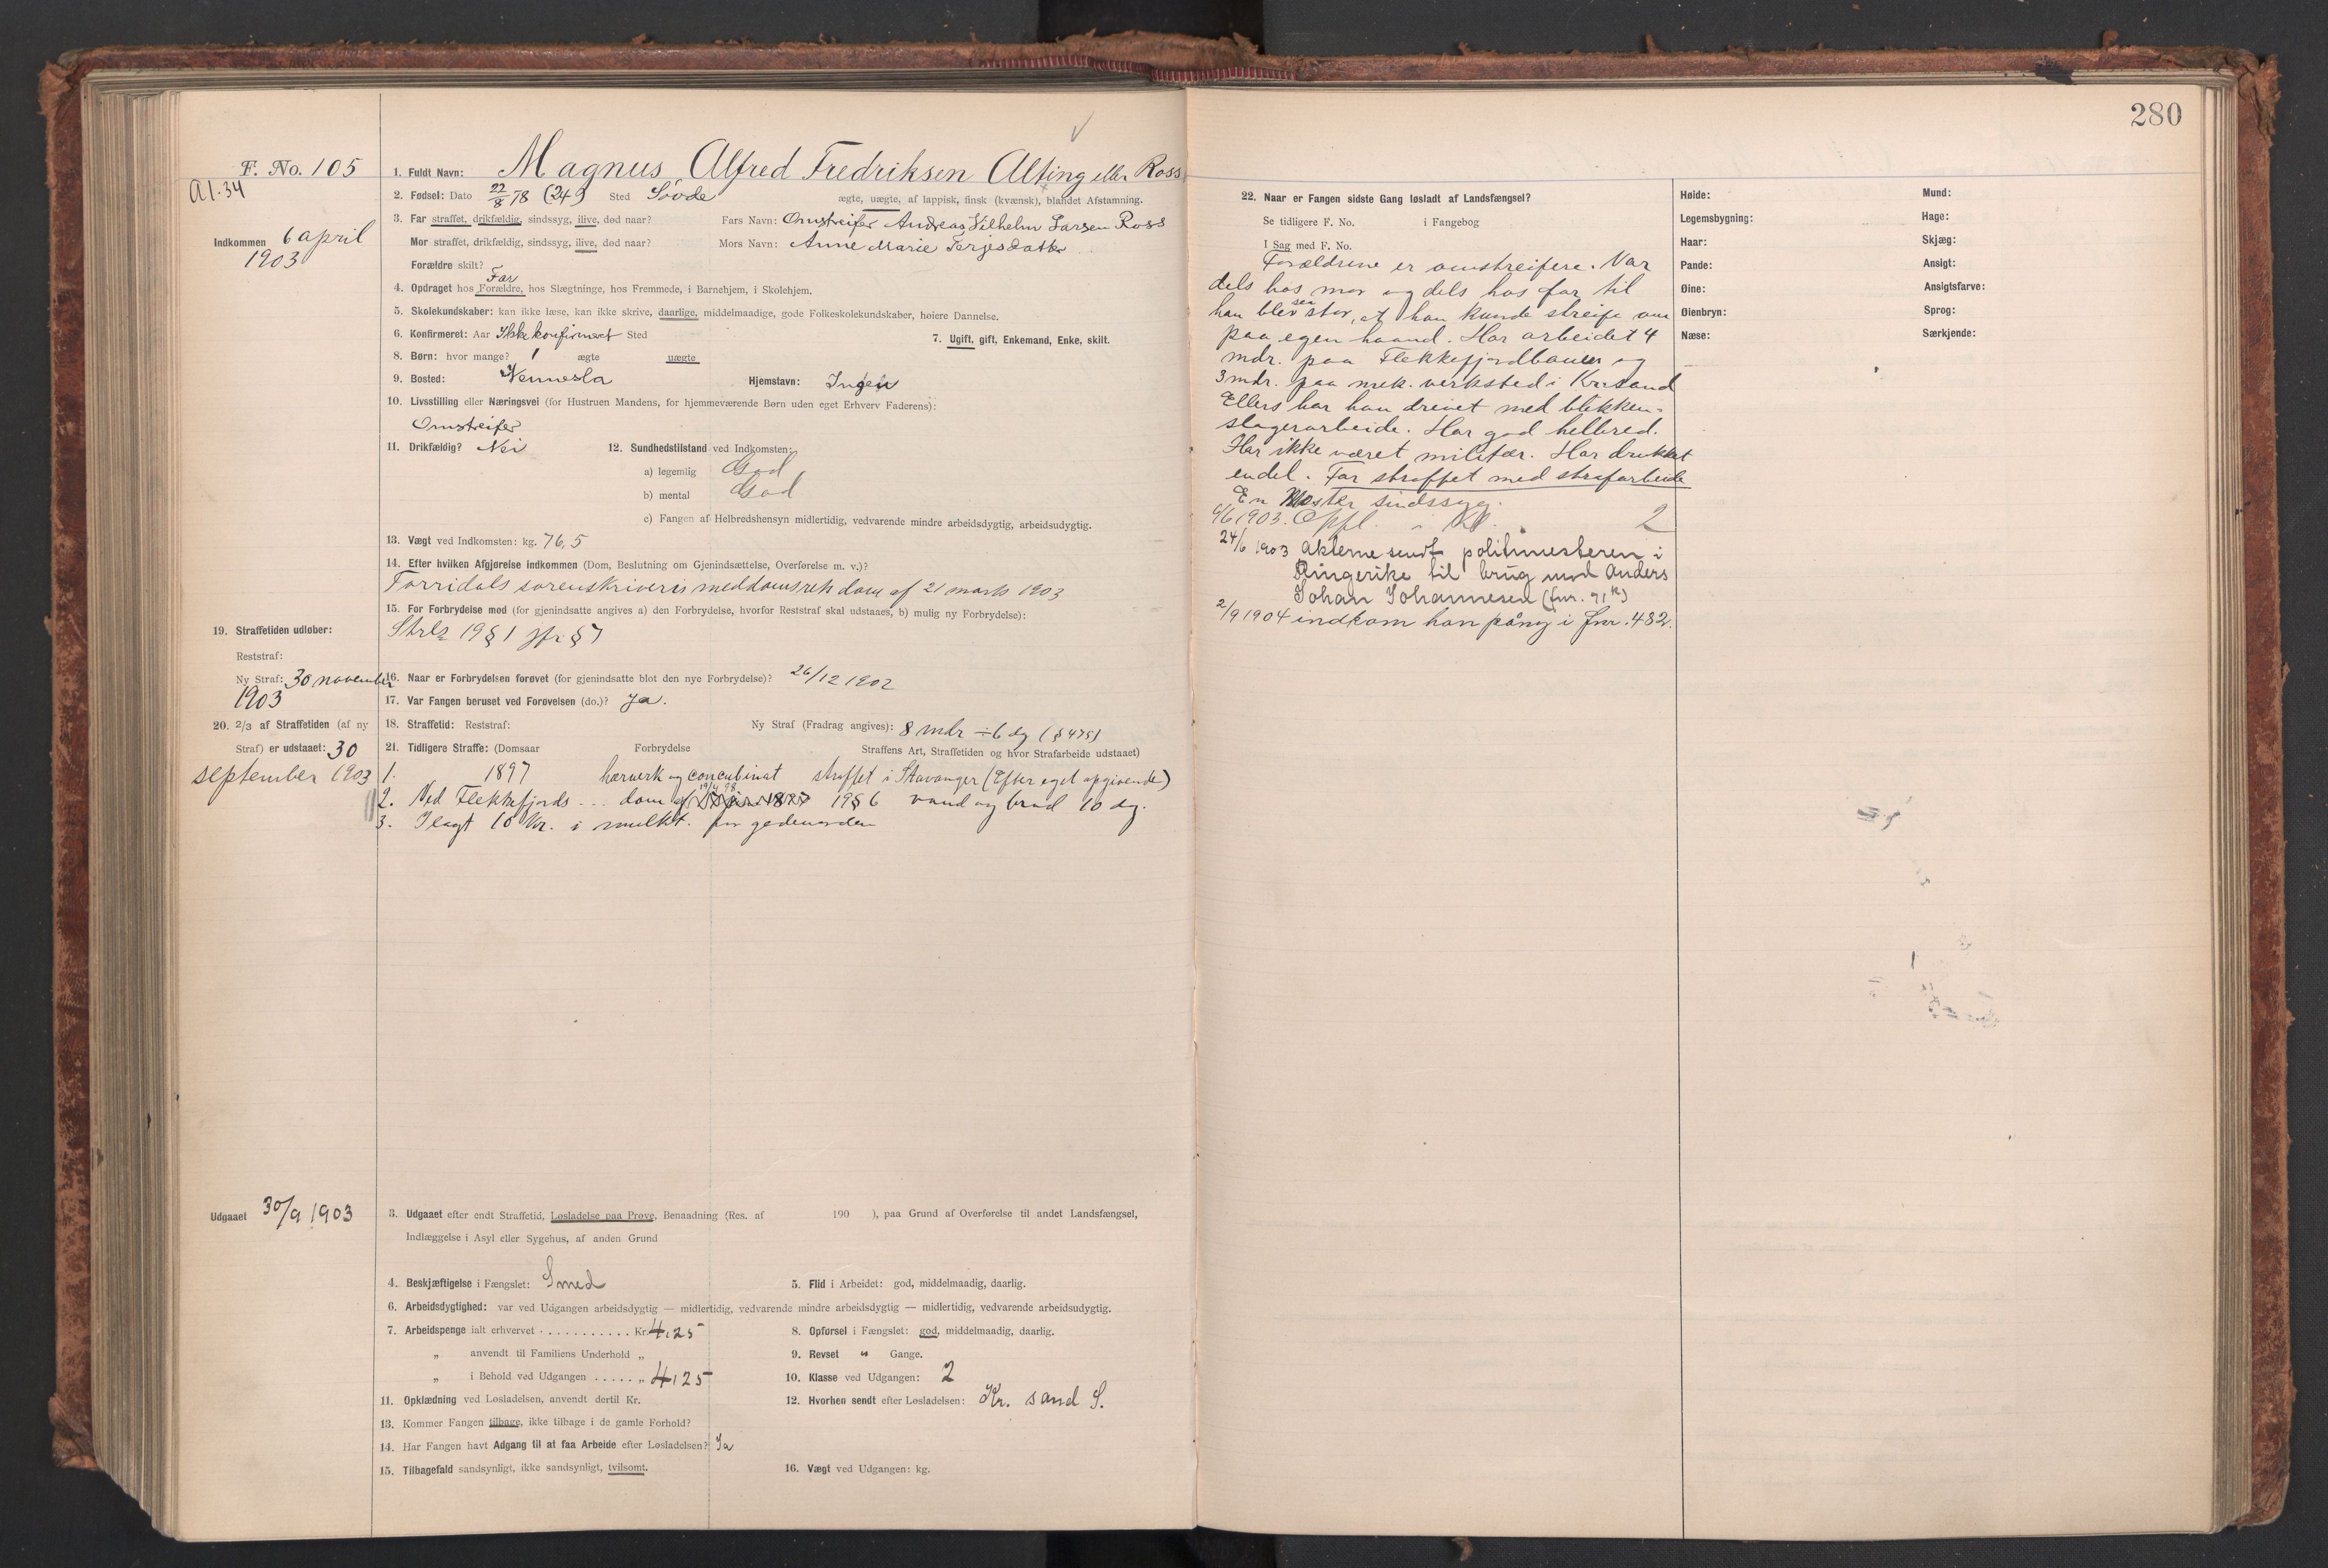 280
F. No. 105
Al. 34
Indkommen 6 april
1903
1. Fuldt Navn: Magnus Alfred Fredriksen Alting eller Ross
2. Fødsel: Dato 22/8 78 (24) Sted Sövde ægte, uægte, af lappisk, finsk (kvænsk), blandet Afstamning.
3. Far straffet, drikfældig, sindssyg, ilive, død naar? Fars Navn: Omstreifer Andreas Vilhelm Larsen Ross
Mor straffet, drikfældig, sindssyg, ilive, død naar? Mors Navn: Anne Marie Terjesdatter
Forældre skilt?
Far
4. Opdraget hos Forældre, hos Slægtninge, hos Fremmede, i Barnehjem, i Skolehjem.
5. Skolekundskaber: kan ikke læse, kan ikke skrive, daarlige, middelmaadige, gode Folkeskolekundskaber, høiere Dannelse.
6. Konfirmeret: Aar Ikke konfirmert Sted 7. Ugift, gift, Enkemand, Enke, skilt.
8. Børn: hvor mange? 1 ægte uægte
9. Bosted: Vennesla Hjemstavn: Ingen
10. Livsstilling eller Næringsvei (for Hustruen Mandens, for hjemmeværende Børn uden eget Erhverv Faderens):
Omstreifer
11. Drikfældig? Nei 12. Sundhedstilstand ved Indkomsten:
a) legemlig God
b) mental God
c) Fangen af Helbredshensyn midlertidig, vedvarende mindre arbeidsdygtig, arbeidsudygtig.
13. Vægt ved Indkomsten: kg. 76,5
14. Efter hvilken Afgjørelse indkommen (Dom, Beslutning om Gjenindsættelse, Overførelse m. v.)?
Torridals sorenskriveris meddomsret dom af 21 marts 1903
15. For Forbrydelse mod (for gjenindsatte angives a) den Forbrydelse, hvorfor Reststraf skal udstaaes, b) mulig ny Forbrydelse):
Strl 19 § 1 jfr § 7
19. Straffetiden udløber:
Reststraf:
Ny Straf: 30 november
1903
16. Naar er Forbrydelsen forøvet (for gjenindsatte blot den nye Forbrydelse)? 26/12 1902
17. Var Fangen beruset ved Forøvelsen (do.)? Ja.
20. 2/3 af Straffetiden (af ny
Straf) er udstaaet: 30
september 1903
18. Straffetid: Reststraf: Ny Straf (Fradrag angives): 8 mdr ÷ 6 dg (§ 475)
21. Tidligere Straffe: (Domsaar Forbrydelse Straffens Art, Straffetiden og hvor Strafarbeide udstaaet)
1. 1897 hærverk og concubinat straffet i Stavanger (Efter eget opgivende)
2. Ved Flekkefjords ... dom af 19/4 98 19 § 6 vand og brød 10 dg.
3. Ilagt 10 Kr. i mulkt. for gadeuorden
Udgaaet 30/9 1903
3. Udgaaet efter endt Straffetid, Løsladelse paa Prøve, Benaadning (Res. af 190 ), paa Grund af Overførelse til andet Landsfængsel,
Indlæggelse i Asyl eller Sygehus, af anden Grund
4. Beskjæftigelse i Fængslet: Smed 5. Flid i Arbeidet: god, middelmaadig, daarlig.
6. Arbeidsdygtighed: var ved Udgangen arbeidsdygtig — midlertidig, vedvarende mindre arbeidsdygtig — midlertidig, vedvarende arbeidsudygtig.
7. Arbeidspenge ialt erhvervet . . . . . . . . . . . Kr. 4,25 8. Opførsel i Fængslet: god, middelmaadig, daarlig.
„ anvendt til Familiens Underhold „ 9. Revset „ Gange.
„ i Behold ved Udgangen . . . . . „ 4,25 10. Klasse ved Udgangen: 2
11. Opklædning ved Løsladelsen, anvendt dertil Kr. 12. Hvorhen sendt efter Løsladelsen: Kr. sand S.
13. Kommer Fangen tilbage, ikke tilbage i de gamle Forhold?
14. Har Fangen havt Adgang til at faa Arbeide efter Løsladelsen? Ja
15. Tilbagefald sandsynligt, ikke sandsynligt, tvilsomt. 16. Vægt ved Udgangen: kg.
22. Naar er Fangen sidste Gang løsladt af Landsfængsel?
Se tidligere F. No. i Fangebog
I Sag med F. No.
Forældrene er omstreifere. Var
dels hos mor og dels hos far til
han blev saa stor, at han kunde streife om
paa egen haand. Har arbeidet 4
mdr. paa Flekkefjordbanen og
3 mdr. paa mek. verksted i Kr.sand
Ellers har han drevet med blikken-
slagerarbeide. Har god helbred.
Har ikke været militær. Har drukket
endel. Far straffet med strafarbeide
En Moster sindssyg.
6/6 1903. Opfl. i Kl. 2
24/6 1903 akterne sendt politimesteren i
Ringerike til brug mod Anders
Johan Johannesen (fnr. 91)
2/9 1904 indkom han påny i fnr. 482.
Høide: Mund:
Legemsbygning: Hage:
Haar: Skjæg:
Pande: Ansigt:
Øine: Ansigtsfarve:
Øienbryn: Sprog:
Næse: Særkjende: